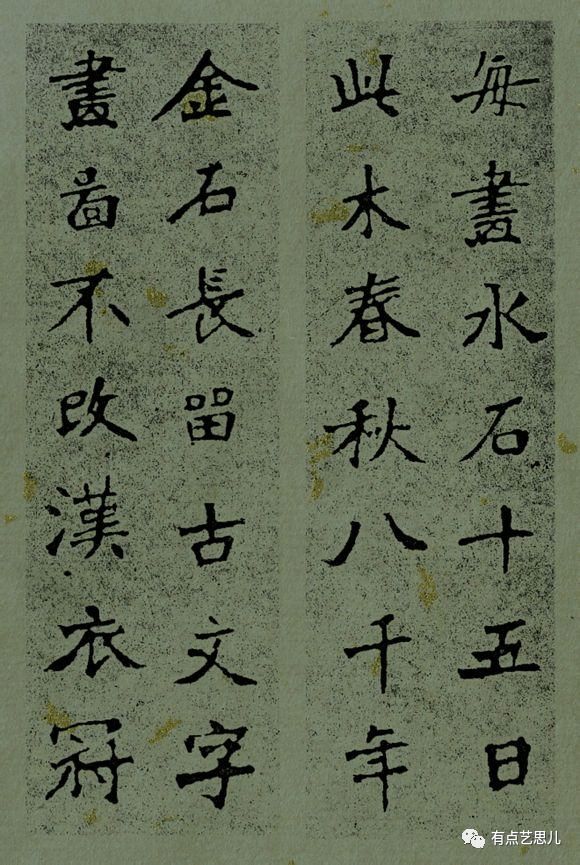 每畫水石十五日
此木春秋八千年
金石長留古文字
畫啚不改漢衣冠
有点艺思儿